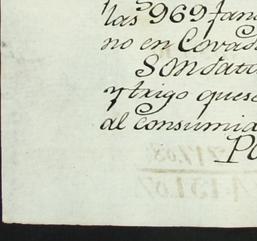 las 969 fan
no en Covad
Son dat
y trigo ques
al consumid
P